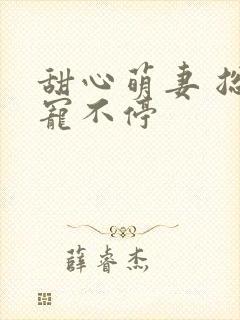 甜心萌妻
宠不停
薛睿杰